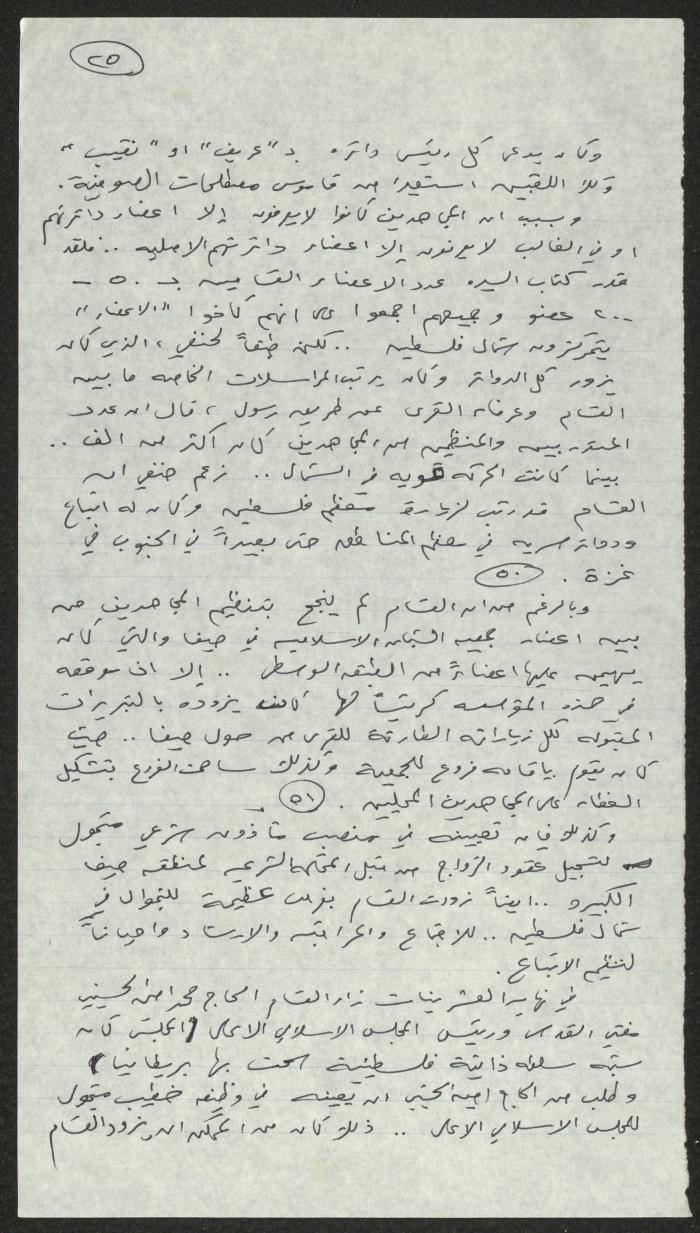 ٢٥
وكان يدعى كل رئيس دائره بـ "عريف" او "نقيب"
وكلا اللقبين استعيرا من قاموس مصطلحات الصوفية.
وبسبب ان المجاهدين كانوا لا يعرفون إلا اعضاء دائرتهم
او في الغالب لا يعرفون إلا اعضاء دائرتهم الاصليه .. فلقد
قدر كتاب السيره عدد الاعضاء القساميين بـ ٥٠ -
٢٠٠ عضو وجميعهم اجمعوا على انهم كانوا "الاعضاء"
يتمركزون شمال فلسطين .. لكن طبقاً لحنفي، الذي كان
يزور كل الدوائر وكان يرتب المراسلات الخاصه ما بين
القسام وعرفاء القرى عن طريق رسول، قال ان عدد
المتدربين والمنظمين من المجاهدين كان أكثر من الف ..
بينما كانت الحركه قويه في الشمال .. زعم حنفي ان
القسام قد رتب لزيارة معظم فلسطين وكان له اتباع
ودوائر سريه في معظم المناطق حتى بعيداً في الجنوب في
غزة . ٥٠
وبالرغم من ان القسام لم ينجح بتنظيم المجاهدين من
بين اعضاء جمعيه الشبان الاسلاميه في حيفا والتي كان
يهيمن عليها اعضاءً من الطبقه الوسطى .. إلا ان موقعه
في هذه المؤسسه كرئيساً لها كانت يزوده بالتبريرات
المقبوله لكل زياراته الطارئة للقرى من حول حيفا .. حيث
كان يقوم باقامه فروع للجمعية وكذلك ساهمت الفروع بتشكيل
الغطاء على المجاهدين المحليين . ٥١
وكذلك فان تعيينه في منصب مأذون شرعي متجول
لتسجيل عقود الزواج من قبل المحكمه الشرعيه لمنطقه حيفا
الكبيره .. ايضاً زودت القسام بفرص عظيمة للتجوال في
شمال فلسطين .. للاجتماع والمراقبه والارشاد واحياناً
لتنظيم الاتباع .
في نهاية العشرينات زار القسام الحاج محمد امين الحسيني
مفتي القدس ورئيس المجلس الاسلامي الاعلى (المجلس كان
شبه سلطه ذاتية فلسطينية سمحت بها بريطانيا)
وطلب من الحاج امين الحسيني ان يعينه في وظيفه خطيب متجول
للمجلس الاسلامي الاعلى .. ذلك كان من الممكن ان يزود القسام